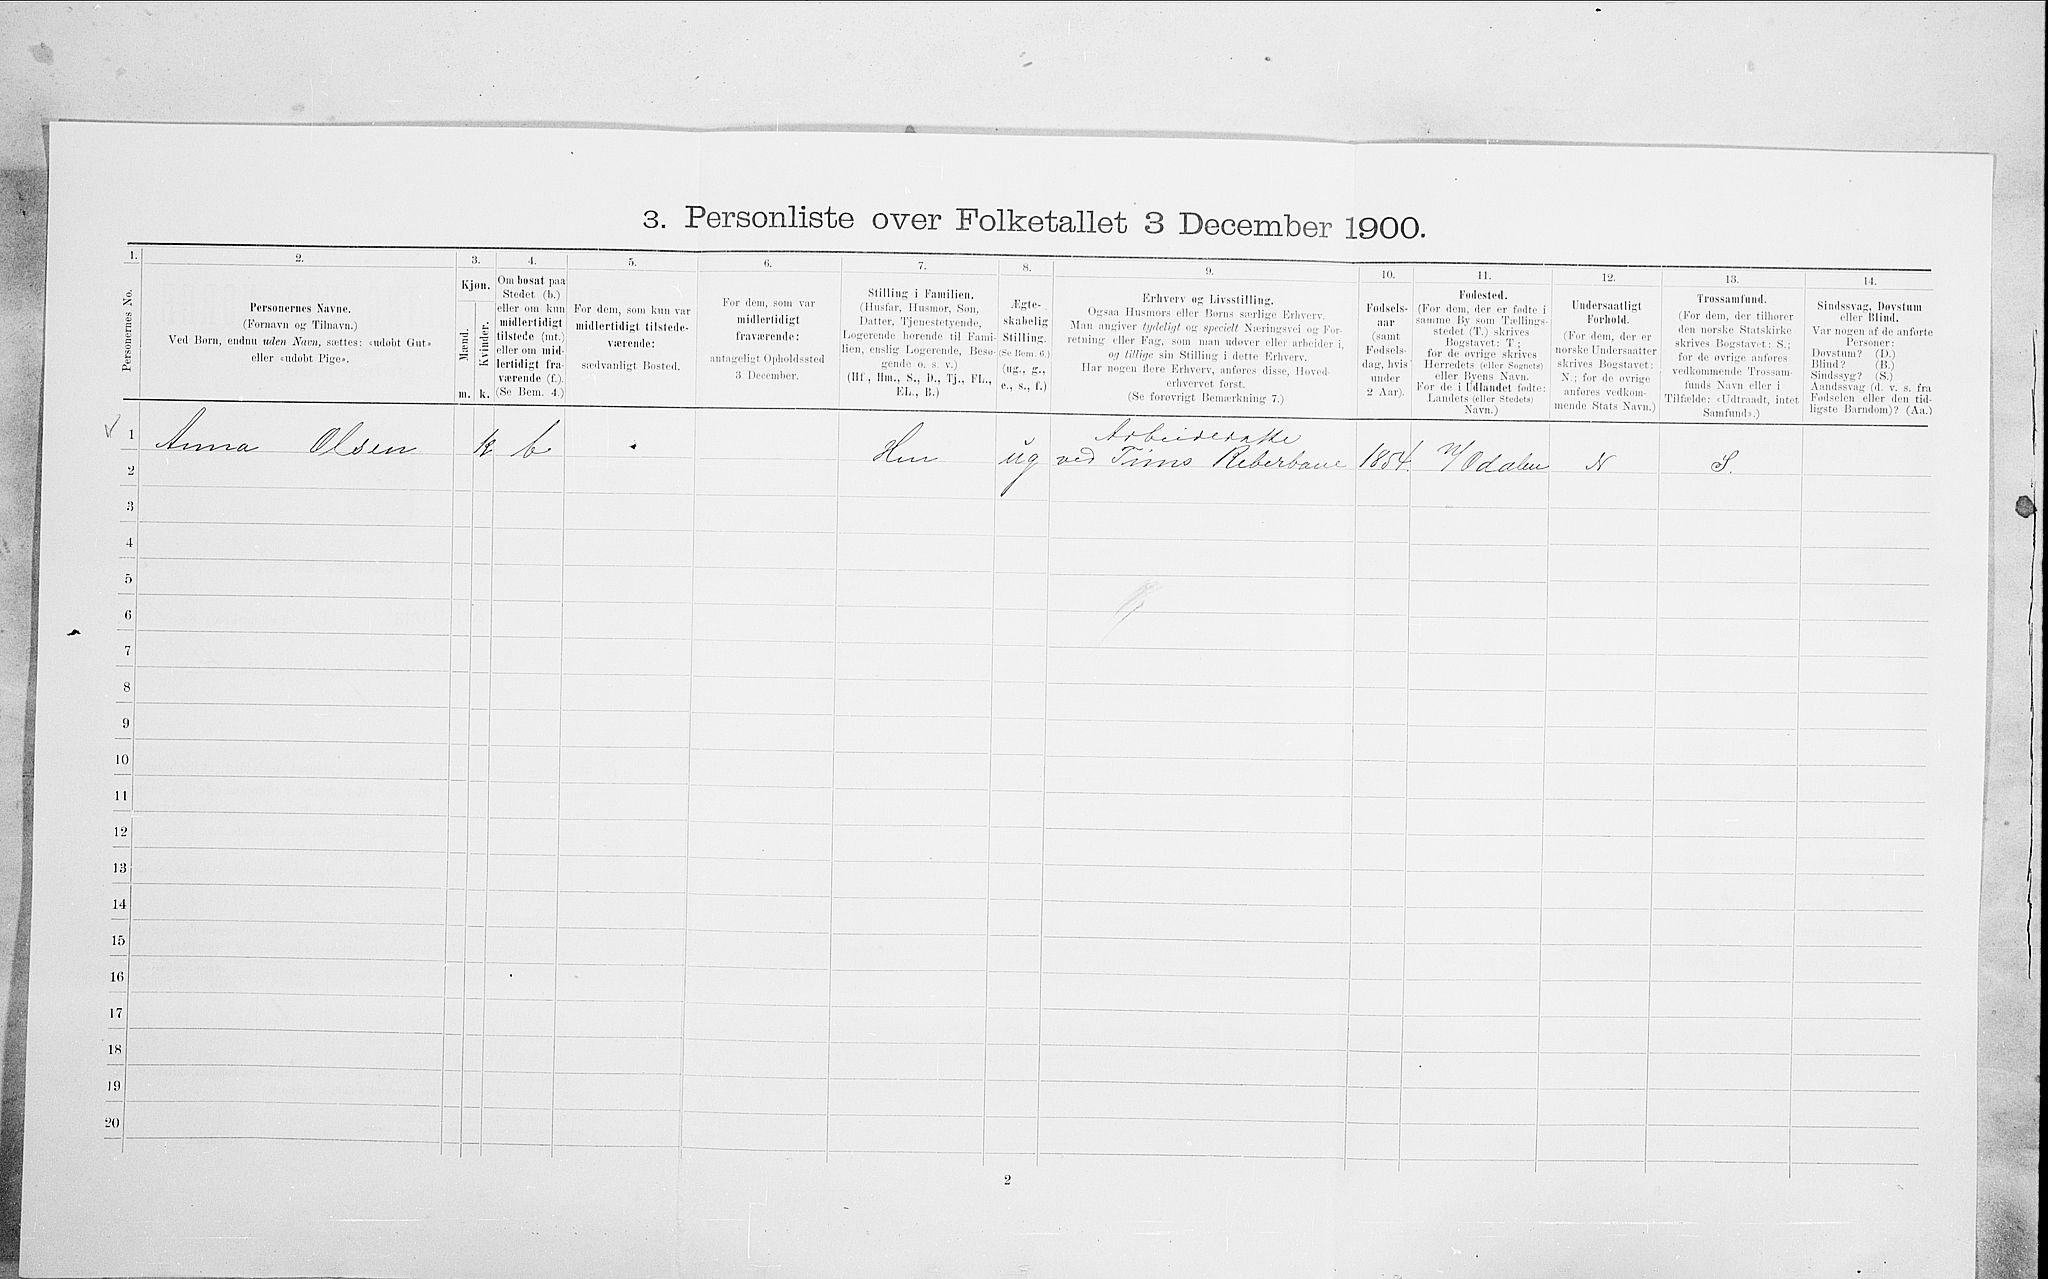 3. Personliste over Folketallet 3 December 1900.
1.
Personernes No.
2.
Personernes Navne.
(Fornavn og Tilnavn.)
Ved Børn, endnu uden Navn, sættes: «udøbt Gut»
eller «udøbt Pige».
3.
Kjøn.
Mænd.
Kvinder.
m. k.
4.
Om bosat paa
Stedet (b.)
eller om kun
midlertidigt
tilstede (mt.)
eller om mid-
lertidigt fra-
værende (f.).
(Se Bem. 4.)
5.
For dem, som kun var
midlertidigt tilstede-
værende:
sædvanligt Bosted.
6.
For dem, som var
midlertidigt
fraværende:
antageligt Opholdssted
3 December.
7.
Stilling i Familien.
(Husfar, Husmor, Søn,
Datter, Tjenestetyende,
Logerende hørende til Fami-
lien, enslig Logerende, Besø-
gende o. s. v.)
(Hf., Hm., S., D., Tj., FL.,
EL., B.)
8.
Ægte-
skabelig
Stilling.
(Se Bem. 6.)
(ug., g.,
e., s., f.)
9.
Erhverv og Livsstilling.
Ogsaa Husmors eller Børns særlige Erhverv.
Man angiver tydeligt og specielt Næringsvei og For-
retning eller Fag, som man udøver eller arbeider i,
og tillige sin Stilling i dette Erhverv.
Har nogen flere Erhverv, anføres disse, Hoved-
erhvervet først.
(Se forøvrigt Bemærkning 7.)
10.
Fødsels-
aar
(samt
Fødsels-
dag, hvis
under
2 Aar).
11.
Fødested.
(For dem, der er fødte i
samme By som Tællings-
stedet (T.) skrives
Bogstavet: T.;
for de øvrige skrives
Herredets (eller Sognets)
eller Byens Navn.
For de i Udlandet fødte:
Landets (eller Stedets)
Navn.)
12.
Undersaatligt
Forhold.
(For dem, der er
norske Undersaatter
skrives Bogstavet:
N.; for de øvrige
anføres vedkom-
mende Stats Navn.)
13.
Trossamfund.
(For dem, der tilhører
den norske Statskirke
skrives Bogstavet: S.;
for de øvrige anføres
vedkommende Trossam-
funds Navn eller i
Tilfælde: «Udtraadt, intet
Samfund».)
14.
Sindssvag, Døvstum
eller Blind.
Var nogen af de anførte
Personer:
Døvstum? (D.)
Blind? (B.)
Sindssyg? (S.)
Aandssvag (d. v. s. fra
Fødselen eller den tid-
ligste Barndom)? (Aa.)
1 Anna Olsen k b Hm ug Arbeiderske
ved Fims Reberbane 1854. N/Odalen N S.
2
3
4
5
6
7
8
9
10
11
12
13
14
15
16
17
18
19
20
2